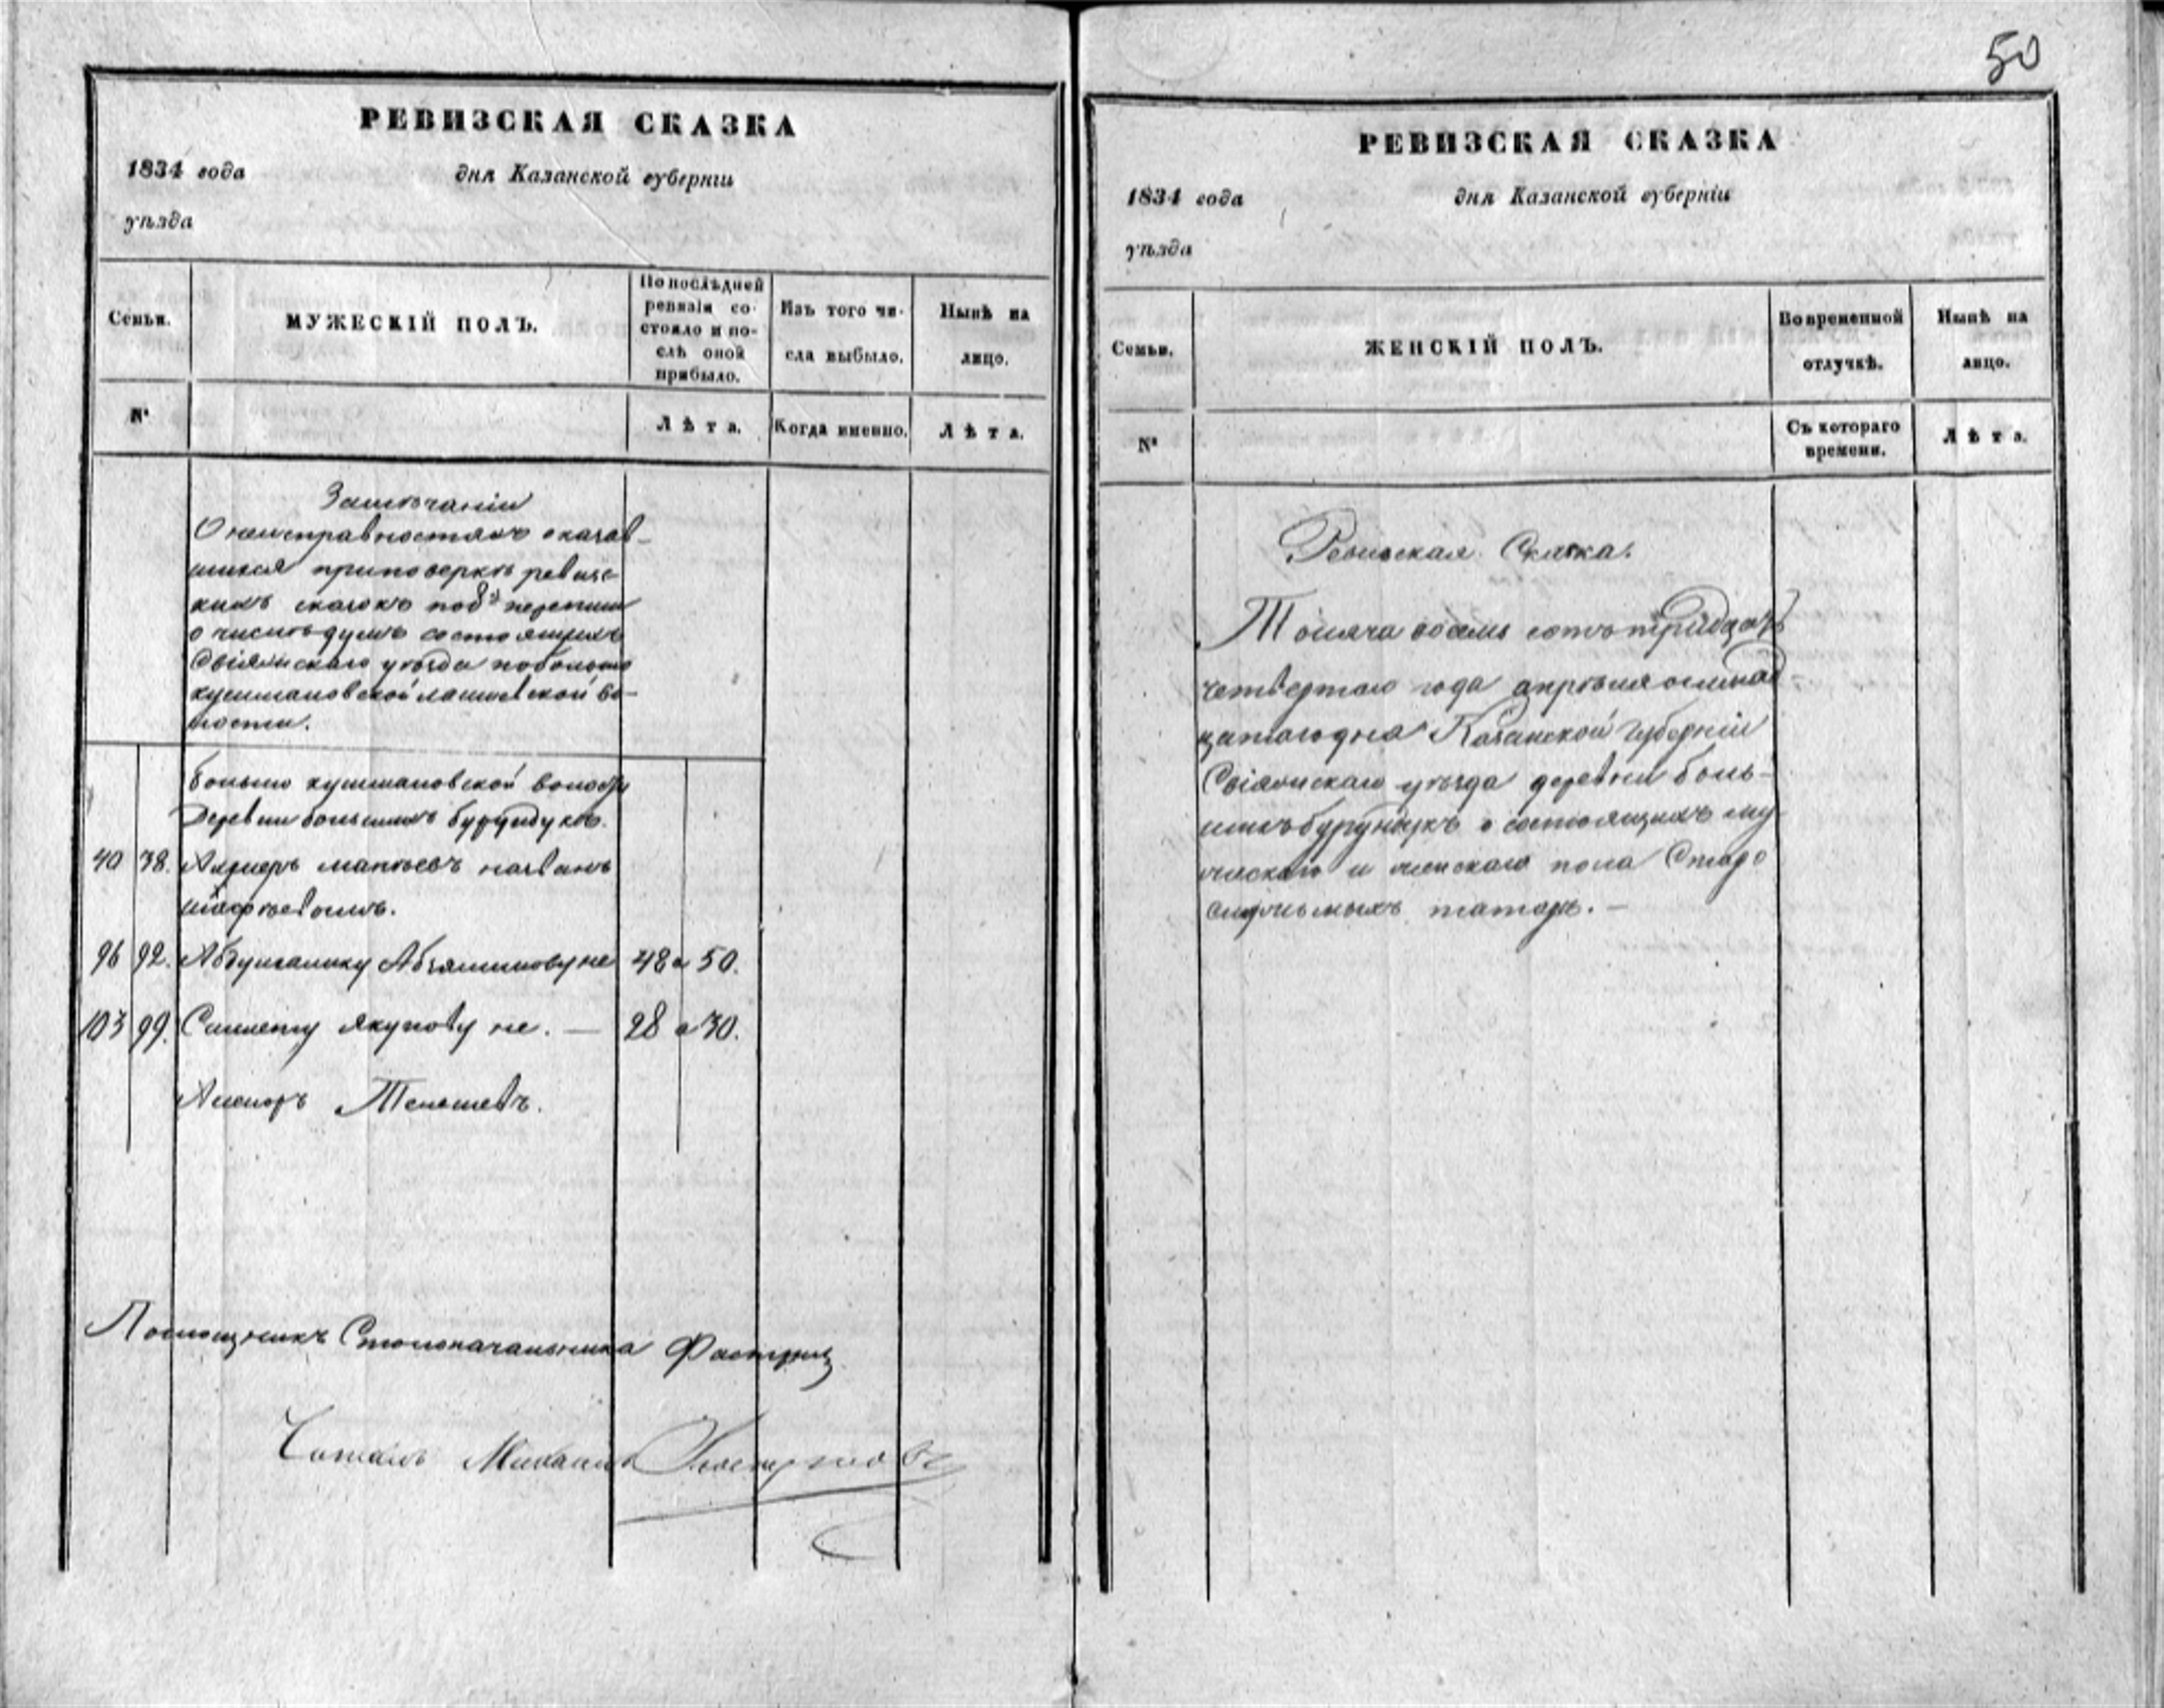 50
РЕВИЗСКАЯ СКАЗКА
1834 года дня Казанской губернiи
уѣзда
Семьи. МУЖЕСКIЙ ПОЛЪ. По послѣдней ревизiи состояло и послѣ оной прибыло. Изъ того числа выбыло. Нынѣ на лицо.
№ Лѣта. Когда именно. Лѣта.
Замѣчанiи
О неисправностяхъ оказав-
шихся при поверкѣ ревизс-
кихъ сказокъ
о числѣ душъ состоящихъ
Свiяжскаго уѣзда по больше
кушмановской во-
лости.
больше кушмановской
Деревни большихъ бурундукъ.
40 38. матвѣевъ названъ
96 92. не 48 а 50.
103 99. якупову не. — 28 а 30.
Помощникъ Столоначальника
Читалъ
РЕВИЗСКАЯ СКАЗКА
1834 года дня Казанской губернiи
уѣзда
Семьи. ЖЕНСКIЙ ПОЛЪ. Во временной отлучкѣ. Нынѣ на лицо.
№ Съ котораго времени. Лѣта.
Ревизская Сказка.
Тысяча восемь сотъ тридцать
четвертаго года апрѣля осмнад-
цатого дня Казанской губернiи
Свiяжскаго уѣзда деревни боль-
шихъ бурундукъ о состоящихъ му-
жескаго и женскаго пола Старо
служилыхъ татаръ. —